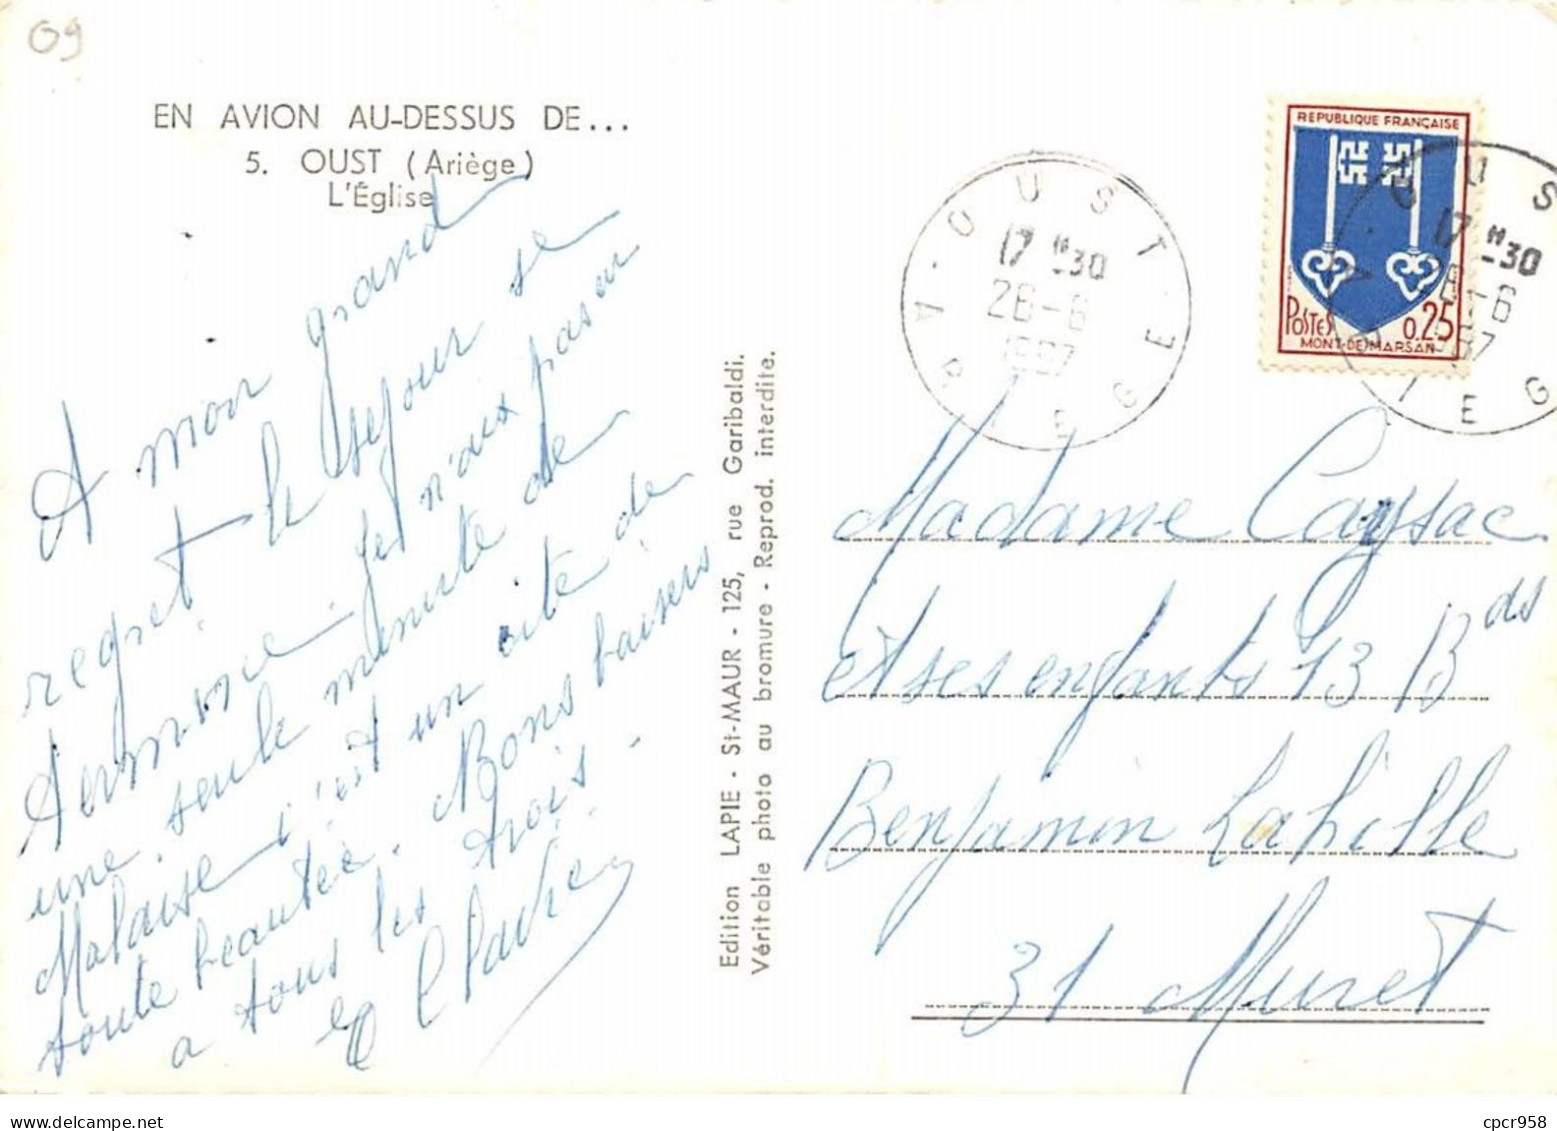 09
EN AVION AU-DESSUS DE...
5. OUST (Ariège)
L'Église
A mon grand
regret le séjour se
termine je n'aux pas eu
une seule minute de
Malaise c'est un cite de
toute beautée. Bons baisers
a tous les trois -
Edition LAPIE - St-MAUR - 125, rue Garibaldi.
Véritable photo au bromure - Reprod. interdite.
OUST
17 H 30
28-6
1967
ARIEGE
REPUBLIQUE FRANÇAISE
POSTES 0,25
MONT-DE-MARSAN
OUST
17 H 30
28-6
ARIEGE
Madame Caysac
et ses enfants 13 Bds
Benjamin Lahille
31 Muret
cpcr958